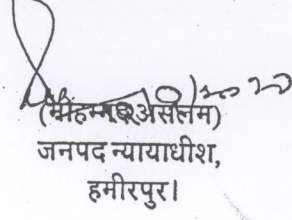 (मोहम्मद असलम)
जनपद न्यायाधीश,
हमीरपुर।